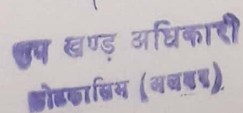 उप खण्ड़ अधिकारी
कोटकासिम (अलवर)